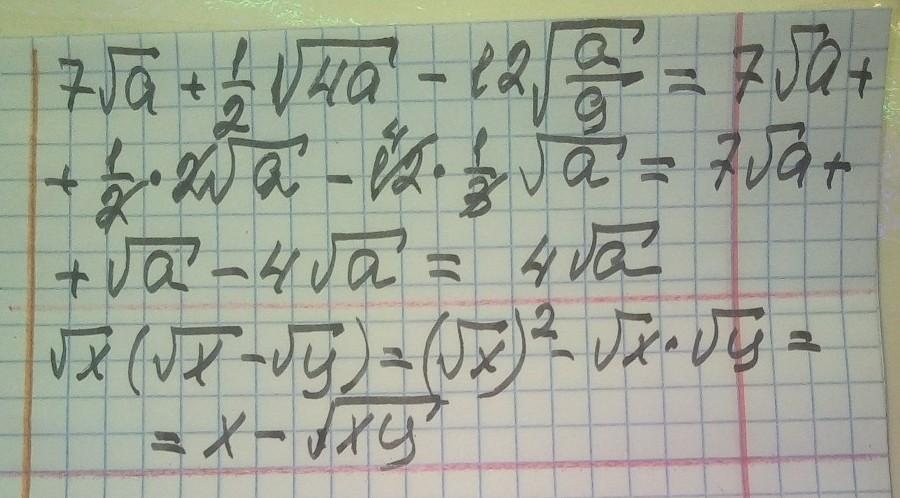 7√a + 1/2 √4a − 12√a/9 = 7√a +
+ 1/2 · 2√a − 12 4 · 1/3 √a = 7√a +
+ √a − 4√a = 4√a
√x (√x − √y) = (√x)² − √x · √y =
= x − √xy